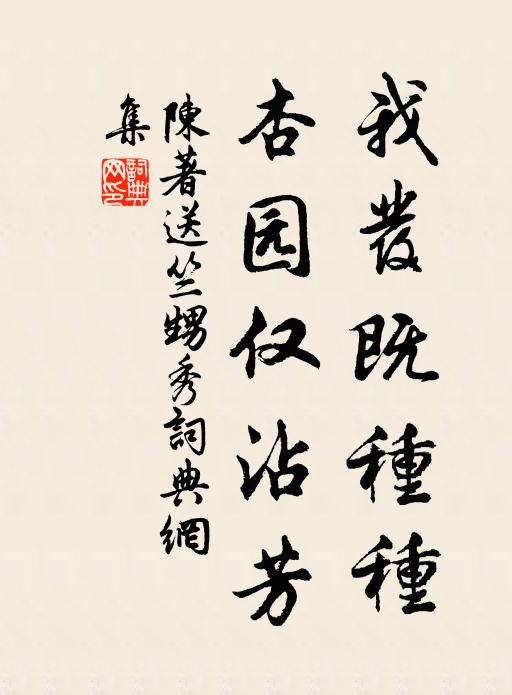 我發既種種
杏园仅沾芳
陳著送竺甥秀詞典網
集
詞典網印